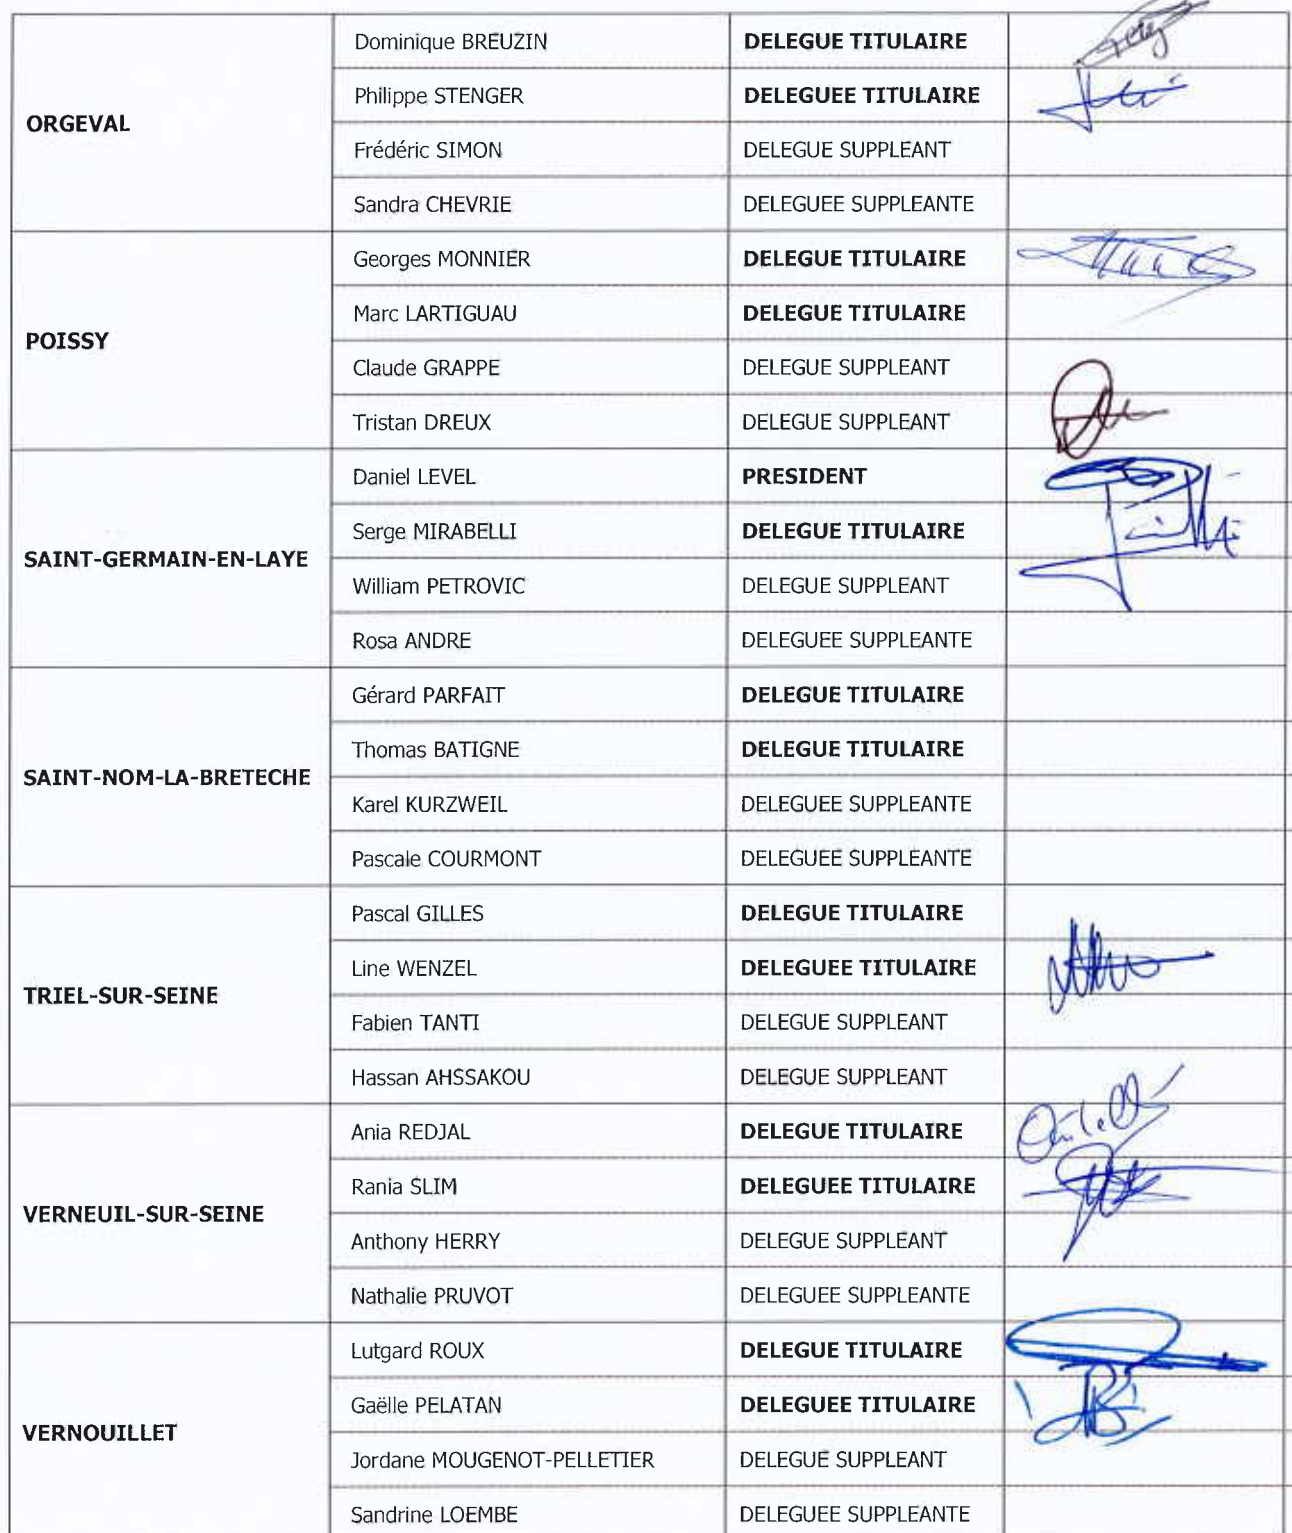 ORGEVAL
Dominique BREUZIN DELEGUE TITULAIRE
Philippe STENGER DELEGUEE TITULAIRE
Frédéric SIMON DELEGUE SUPPLEANT
Sandra CHEVRIE DELEGUEE SUPPLEANTE
POISSY
Georges MONNIER DELEGUE TITULAIRE
Marc LARTIGUAU DELEGUE TITULAIRE
Claude GRAPPE DELEGUE SUPPLEANT
Tristan DREUX DELEGUE SUPPLEANT
SAINT-GERMAIN-EN-LAYE
Daniel LEVEL PRESIDENT
Serge MIRABELLI DELEGUE TITULAIRE
William PETROVIC DELEGUE SUPPLEANT
Rosa ANDRE DELEGUEE SUPPLEANTE
SAINT-NOM-LA-BRETECHE
Gérard PARFAIT DELEGUE TITULAIRE
Thomas BATIGNE DELEGUE TITULAIRE
Karel KURZWEIL DELEGUEE SUPPLEANTE
Pascale COURMONT DELEGUEE SUPPLEANTE
TRIEL-SUR-SEINE
Pascal GILLES DELEGUE TITULAIRE
Line WENZEL DELEGUEE TITULAIRE
Fabien TANTI DELEGUE SUPPLEANT
Hassan AHSSAKOU DELEGUE SUPPLEANT
VERNEUIL-SUR-SEINE
Ania REDJAL DELEGUE TITULAIRE
Rania SLIM DELEGUEE TITULAIRE
Anthony HERRY DELEGUE SUPPLEANT
Nathalie PRUVOT DELEGUEE SUPPLEANTE
VERNOUILLET
Lutgard ROUX DELEGUE TITULAIRE
Gaëlle PELATAN DELEGUEE TITULAIRE
Jordane MOUGENOT-PELLETIER DELEGUE SUPPLEANT
Sandrine LOEMBE DELEGUEE SUPPLEANTE